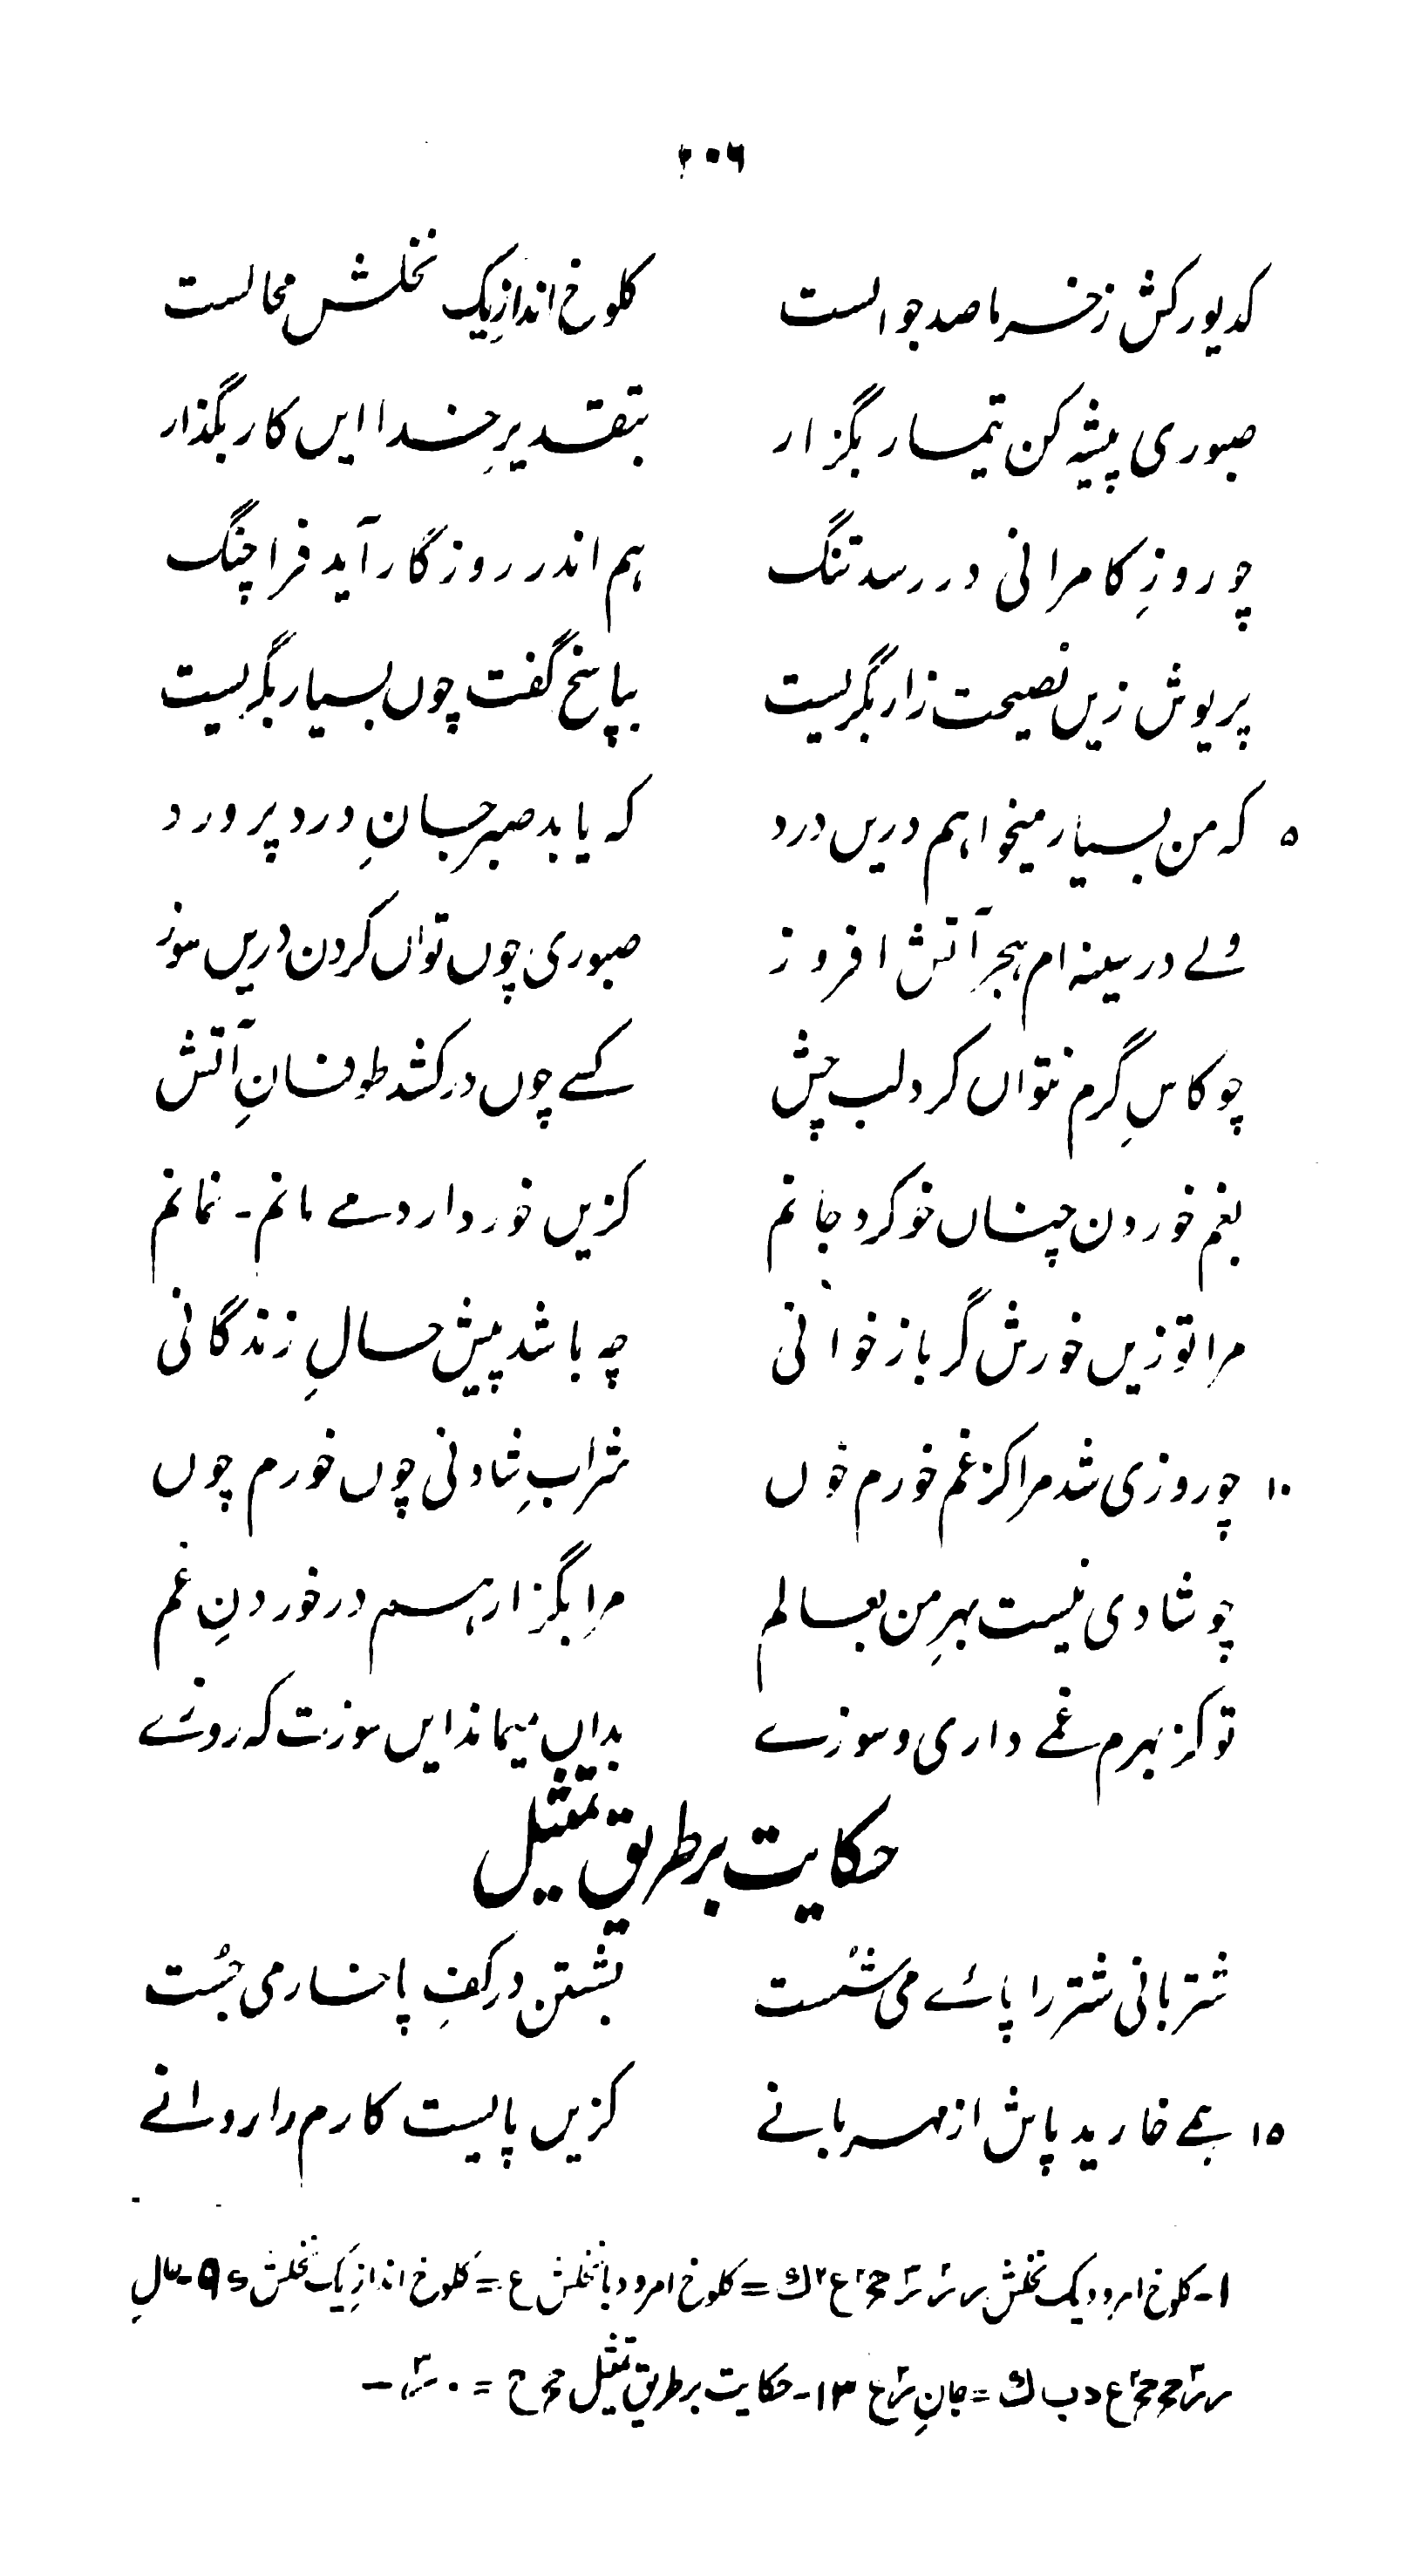 ۲۰۶
کدیور کش زخرما صد جوالست کلوخ اندازِ یک نخلش محالست
صبوری پیشه کن تیمار بگزار بتقدیرِ خدا ایں کار بگذار
چو روزِ کامرانی در رسد تنگ ہم اندر روزگار آید فراچنگ
پریوش زیں نصیحت زار بگریست بپاسخ گفت چوں بسیار بگریست
۵ کہ من بسیار میخواہم دریں درد کہ یابد صبر جانِ درد پرورد
ولے در سینہ ام ہجر آتش افروز صبوری چوں تواں کردن دریں سوز
چو کاسِ گرم نتواں کرد لب چش کسے چوں درکشد طوفانِ آتش
بغم خوردن چناں خو کرد جانم کزیں خور دارد مے مانم۔ نمانم
مرا تو زیں خورش گر باز خوانی چہ باشد پیش حالِ زندگانی
۱۰ چو روزی شد مرا کز غم خورم خوں شرابِ شادنی چوں خورم چوں
چو شادی نیست بہرِ من بعالم مرا بگزار ہم در خوردنِ غم
تو کز بہرم غمے داری و سوزے بداں میماند ایں سوزت کہ روزے
حکایت بر طریق تمثیل
شتربانی شتر را پائے می شست بشستن در کفِ پا خار می جُست
۱۵ ہمے خارید پاش از مہربانے کزیں پایست کارم را روانے
۱۔ کلوخ امرود یک نخلش = کلوخ امرود با نخلش ع = کلوخ اندازِ یک نخلش ۹۔ حالِ
= جانِ ۱۳۔ حکایت بر طریق تمثیل